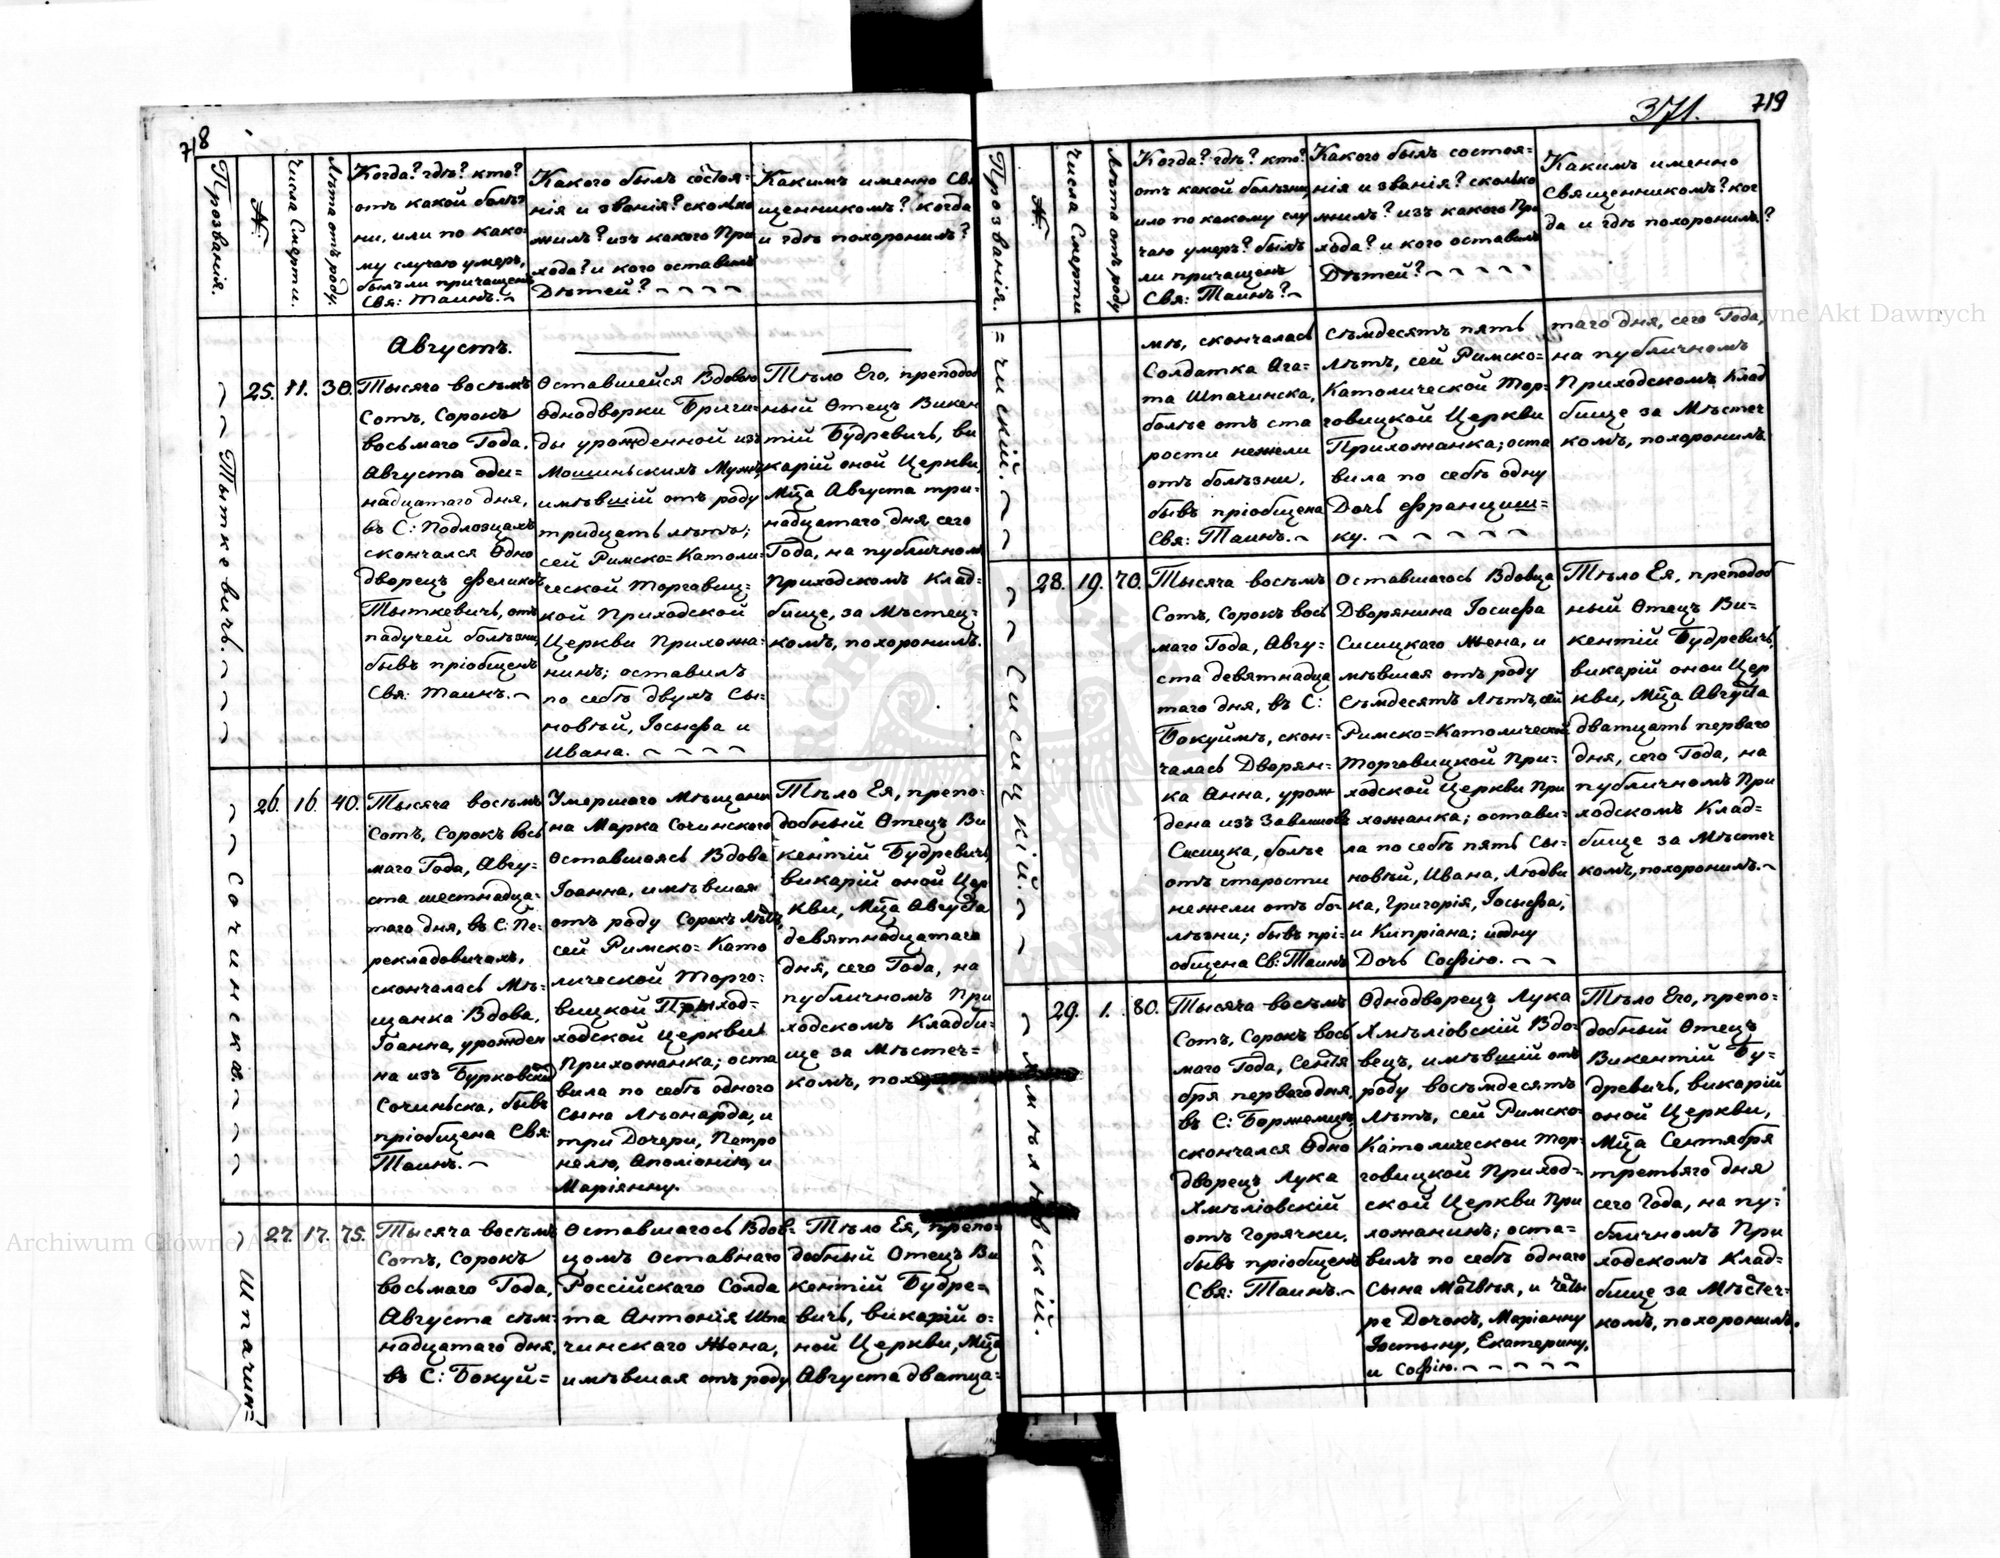 718
Прозванія.
№
Числа Смерти.
Лѣта отъ роду.
Когда? гдѣ? кто?
отъ какой болѣз
ни, или по како-
му случаю умеръ,
былъ ли причащенъ
Свя: Таинъ.
Какого былъ состоя-
нія и званія? сколько
жилъ? изъ какого При
хода? и кого оставилъ
Дѣтей?
Какимъ именно Свя
щенникомъ? когда
и гдѣ похороненъ?
Августъ.
Тыткевичъ.
25. 11. 30.
Тысяча восѣмъ
Сотъ, Сорокъ
восьмаго Года,
Августа оди=
надцатаго дня,
въ С: Подлозцахъ
скончался Одно
дворецъ Феликсъ
Тыткевичъ, отъ
падучей болѣзни,
бывъ пріобщенъ
Свя: Таинъ.
Оставшейся Вдовою
Однодворки Бригн-
ды урожденной изъ
Мошиньскихъ Мужъ,
имѣвшій отъ роду
тридцать лѣтъ;
сей Римско=Католи-
ческой Торговиц=
кой Приходской
Церкви Прихожа-
нинъ; оставилъ
по себѣ двухъ Сы-
новѣй, Іосифа и
Ивана.
Тѣло Его, преподоб
ный Отецъ Викен
тій Будревичъ, ви
карій оной Церкви,
Мца Августа три-
надцатаго дня сего
Года, на публичномъ
Приходскомъ Клад=
бище, за Мѣстеч-
комъ, похоронилъ.
Сочинская.
26. 16. 40.
Тысяча восѣмъ
Сотъ, Сорокъ вось
маго Года, Авгу-
ста шестнадца-
таго дня, въ С: Пе-
рекладовичахъ,
скончалась Мѣ-
щанка Вдова,
Іоанна, урожден
на изъ Бурковской
Сочиньска, бывъ
пріобщена Свя:
Таинъ.
Умершаго Мѣщани
на Марка Сочинскаго
Оставшаясь Вдова
Іоанна, имѣвшая
отъ роду Сорокъ Лѣтъ,
сей Римско= Като
лической Торго-
вицкой Приход-
ходской Церкви
Прихожанка; оста
вила по себѣ одного
Сына Лѣонарда, и
три Дочери, Петро
нелю, Аполіонію, и
Маріянну.
Тѣло Ея, препо-
добный Отецъ Ви
кентій Будревичъ,
викарій оной Цер
кви, Мца Августа
девятнадцатаго
дня, сего Года, на
публичномъ При
ходскомъ Кладби-
ще за Мѣстеч=
комъ,
Шпачин=
27. 17. 75.
Тысяча восѣмъ
Сотъ, Сорокъ
восьмаго Года,
Августа сѣм-
надцатаго дня,
въ С: Бокуй=
Оставшагось Вдов-
цомъ Оставнаго
Россійскаго Солда
та Антонія Шпа
чинскаго Жена,
имѣвшая отъ роду
Тѣло Ея, препо-
добный Отецъ Ви
кентій Будре=
вичъ, викарій о-
ной Церкви, Мца
Августа дватца-
371. 719
Прозванія.
№
Числа Смерти
Лѣта отъ роду
Когда? гдѣ? кто?
отъ какой болѣзни,
или по какому слу
чаю умеръ? былъ
ли причащенъ
Свя: Таинъ?
Какого былъ состоя=
нія и званія? сколько
жилъ? изъ какого При
хода? и кого оставилъ
Дѣтей?
Какимъ именно
Священникомъ? ког
да и гдѣ похороненъ?
=чискій.
мѣ, скончалась
Солдатка Ага-
та Шпачинска,
болѣе отъ ста
рости нежели
отъ болѣзни,
бывъ пріобщена
Свя: Таинъ.
Сѣмдесятъ пять
лѣтъ, сей Римско=
Католической Тор-
говицкой Церкви
Прихожанка; оста
вила по себѣ одну
Дочь Францишъ=
ку.
таго дня, сего Года,
на публичномъ
Приходскомъ Клад
бище за Мѣстеч
комъ, похоронилъ.
Сисицкій.
28. 19. 70.
Тысяча восѣмъ
Сотъ, Сорокъ вось
маго Года, Авгу-
ста девятнадца
таго дня, въ С:
Бокуймѣ, скон-
чалась Дворян-
ка Анна, урож
дена изъ Завишовъ
Сисицка, болѣе
отъ старости
нежели отъ бо-
лѣзни; бывъ прі-
общена Св: Таинъ
Оставшагось Вдовца
Дворянина Іосифа
Сисицкаго Жена, и
мѣвшая отъ роду
Сѣмдесятъ Лѣтъ, сей
Римско=Католической
Торговицкой При-
ходской Церкви При
хожанка; остави-
ла по себѣ пять Сы-
новѣй, Ивана, Людви
ка, Григорія, Іосифа,
и Кипріана; и одну
Дочь Софію.
Тѣло Ея, преподоб
ный Отецъ Ви-
кентій Будревичъ,
викарій оной Цер
кви, Мца Августа
дватцать перваго
дня, сего Года, на
публичномъ При
ходскомъ Клад=
бище за Мѣстеч
комъ, похоронилъ.
Хмѣлѣвскій.
29. 1. 80.
Тысяча восѣмъ
Сотъ, Сорокъ вось
маго Года, Сентя
бря перваго дня,
въ С: Боржемицѣ,
скончался Одно
дворецъ Лука
Хмѣліовскій
отъ горячки,
бывъ пріобщенъ
Свя: Таинъ.
Однодворецъ Лука
Хмѣліовскій Вдо-
вецъ, имѣвшій отъ
роду восѣмдесятъ
Лѣтъ, сей Римско
Католической Тор-
говицкой Приход-
ской Церкви При
хожанинъ; оста-
вилъ по себѣ однаго
Сына Матвѣя, и четы
ре Дочокъ, Маріанну
Іостыну, Екатерину,
и Софію.
Тѣло Его, препо-
добный Отецъ
Викентій Бу-
древичъ, викарій
оной Церкви,
Мца Сентября
третьяго дня
сего Года, на пу-
бличномъ При
ходскомъ Клад-
бище за Мѣстеч-
комъ, похоронилъ.
Archiwum Główne Akt Dawnych
Archiwum Główne Akt Dawnych